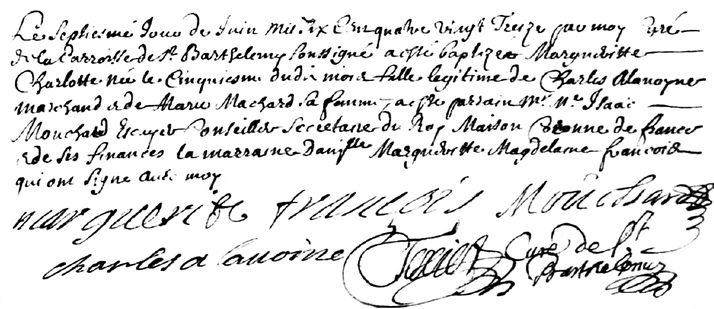 Le septiesme Jour de Juin mil six Cent quatre vingt Treize par moy Curé
de la Parroisse de St Barthelemy soussigné a esté baptizée Margueritte
Charlotte née le Cinquiesme dudit mois fille legitime de Charles Alavoyne
marchand et de Marie Machard sa femme, a esté parrain Mr Me Isaac
Mouchard Escuyer Conseiller Secretaire du Roy Maison Couronne de france
et de ses finances la marraine Dam.lle Margueritte Magdelaine francois
qui ont signé avec moy
marguerite francois Mouchard
charles alavoine Curé de St
Barthelemy